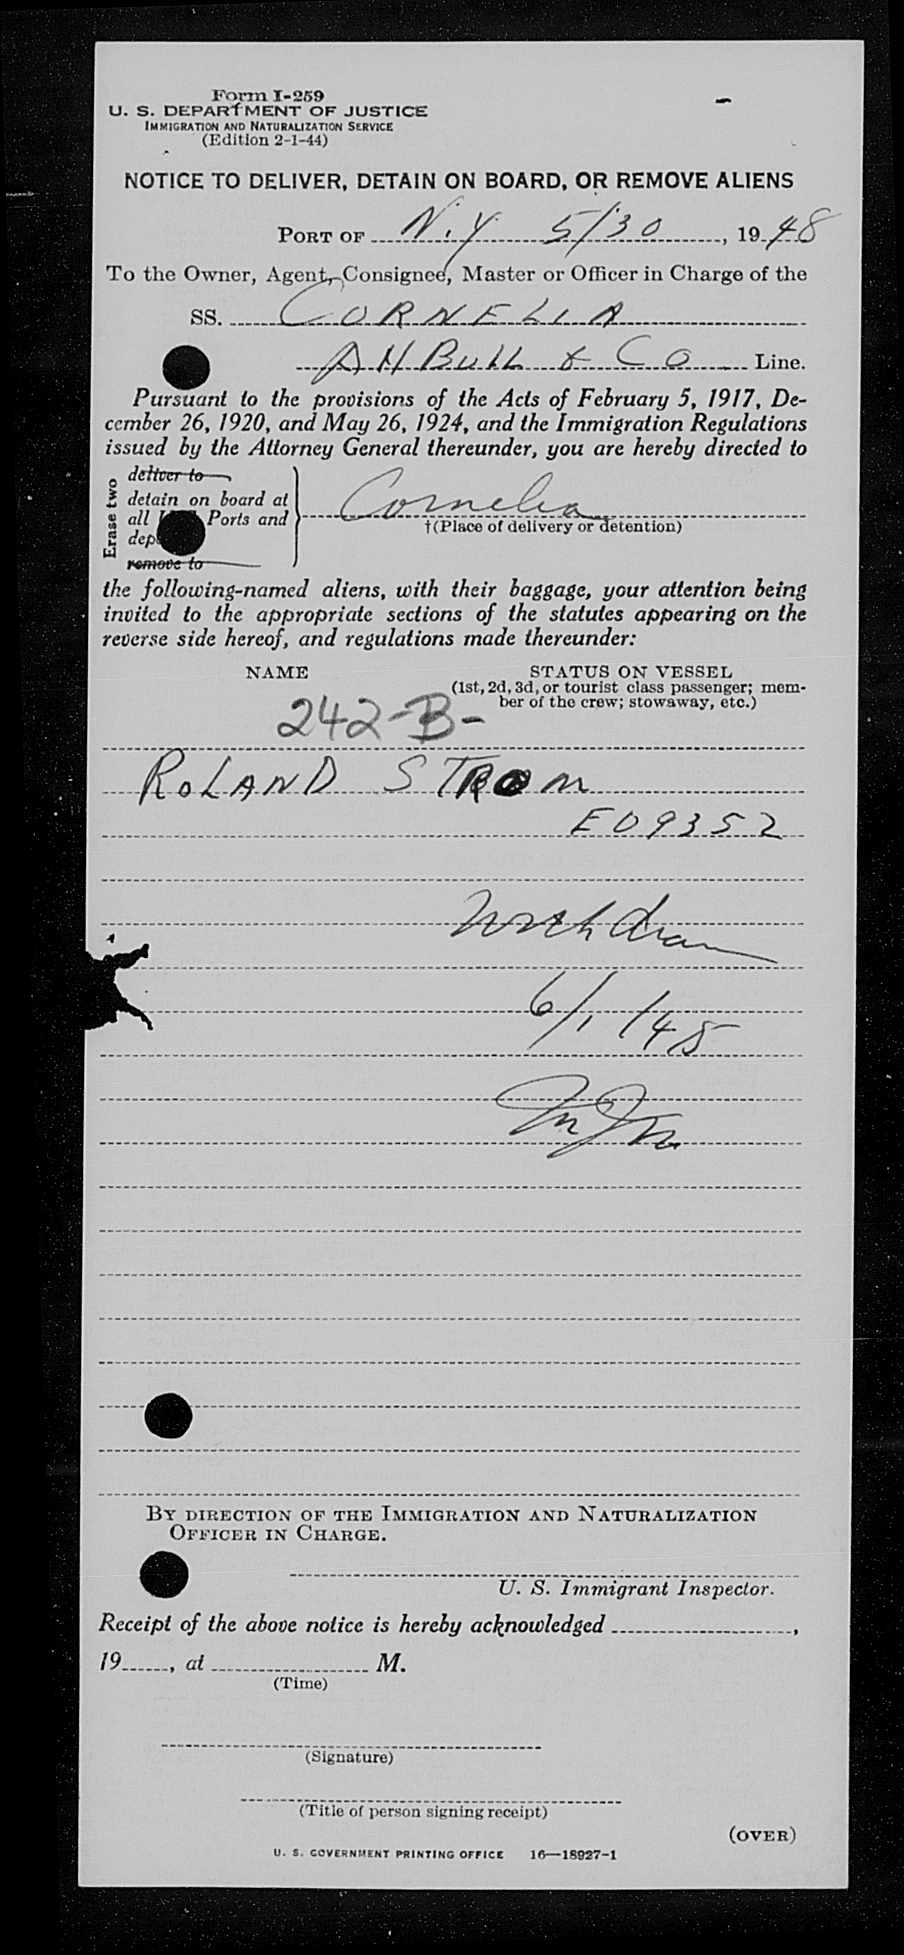 Form I-259
U. S. DEPARTMENT OF JUSTICE
IMMIGRATION AND NATURALIZATION SERVICE
(Edition 2-1-44)
NOTICE TO DELIVER, DETAIN ON BOARD, OR REMOVE ALIENS
PORT OF N.Y 5/30, 1948
To the Owner, Agent, Consignee, Master or Officer in Charge of the
SS. CORNELIA
A H BULL & CO Line.
Pursuant to the provisions of the Acts of February 5, 1917, De-
cember 26, 1920, and May 26, 1924, and the Immigration Regulations
issued by the Attorney General thereunder, you are hereby directed to
Erase two
deliver to
detain on board at
all Ports and
remove to
Cornelia
†(Place of delivery or detention)
the following-named aliens, with their baggage, your attention being
invited to the appropriate sections of the statutes appearing on the
reverse side hereof, and regulations made thereunder:
NAME STATUS ON VESSEL
(1st, 2d, 3d, or tourist class passenger; mem-
ber of the crew; stowaway, etc.)
242-B-
ROLAND STROM
E09352
Withdrawn
6/1/48
BY DIRECTION OF THE IMMIGRATION AND NATURALIZATION
OFFICER IN CHARGE.
U. S. Immigrant Inspector.
Receipt of the above notice is hereby acknowledged ,
19 , at M.
(Time)
(Signature)
(Title of person signing receipt)
(OVER)
U. S. GOVERNMENT PRINTING OFFICE 16—18927-1